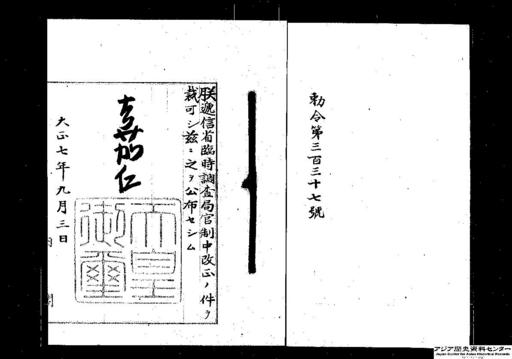 勅令第三百三十七號
朕遞信省臨時調査局官制中改正ノ件ヲ
裁可シ茲ニ之ヲ公布セシム
嘉仁
天皇
御璽
大正七年九月三日
アジア歴史資料センター
Japan Center for Asian Historical Records